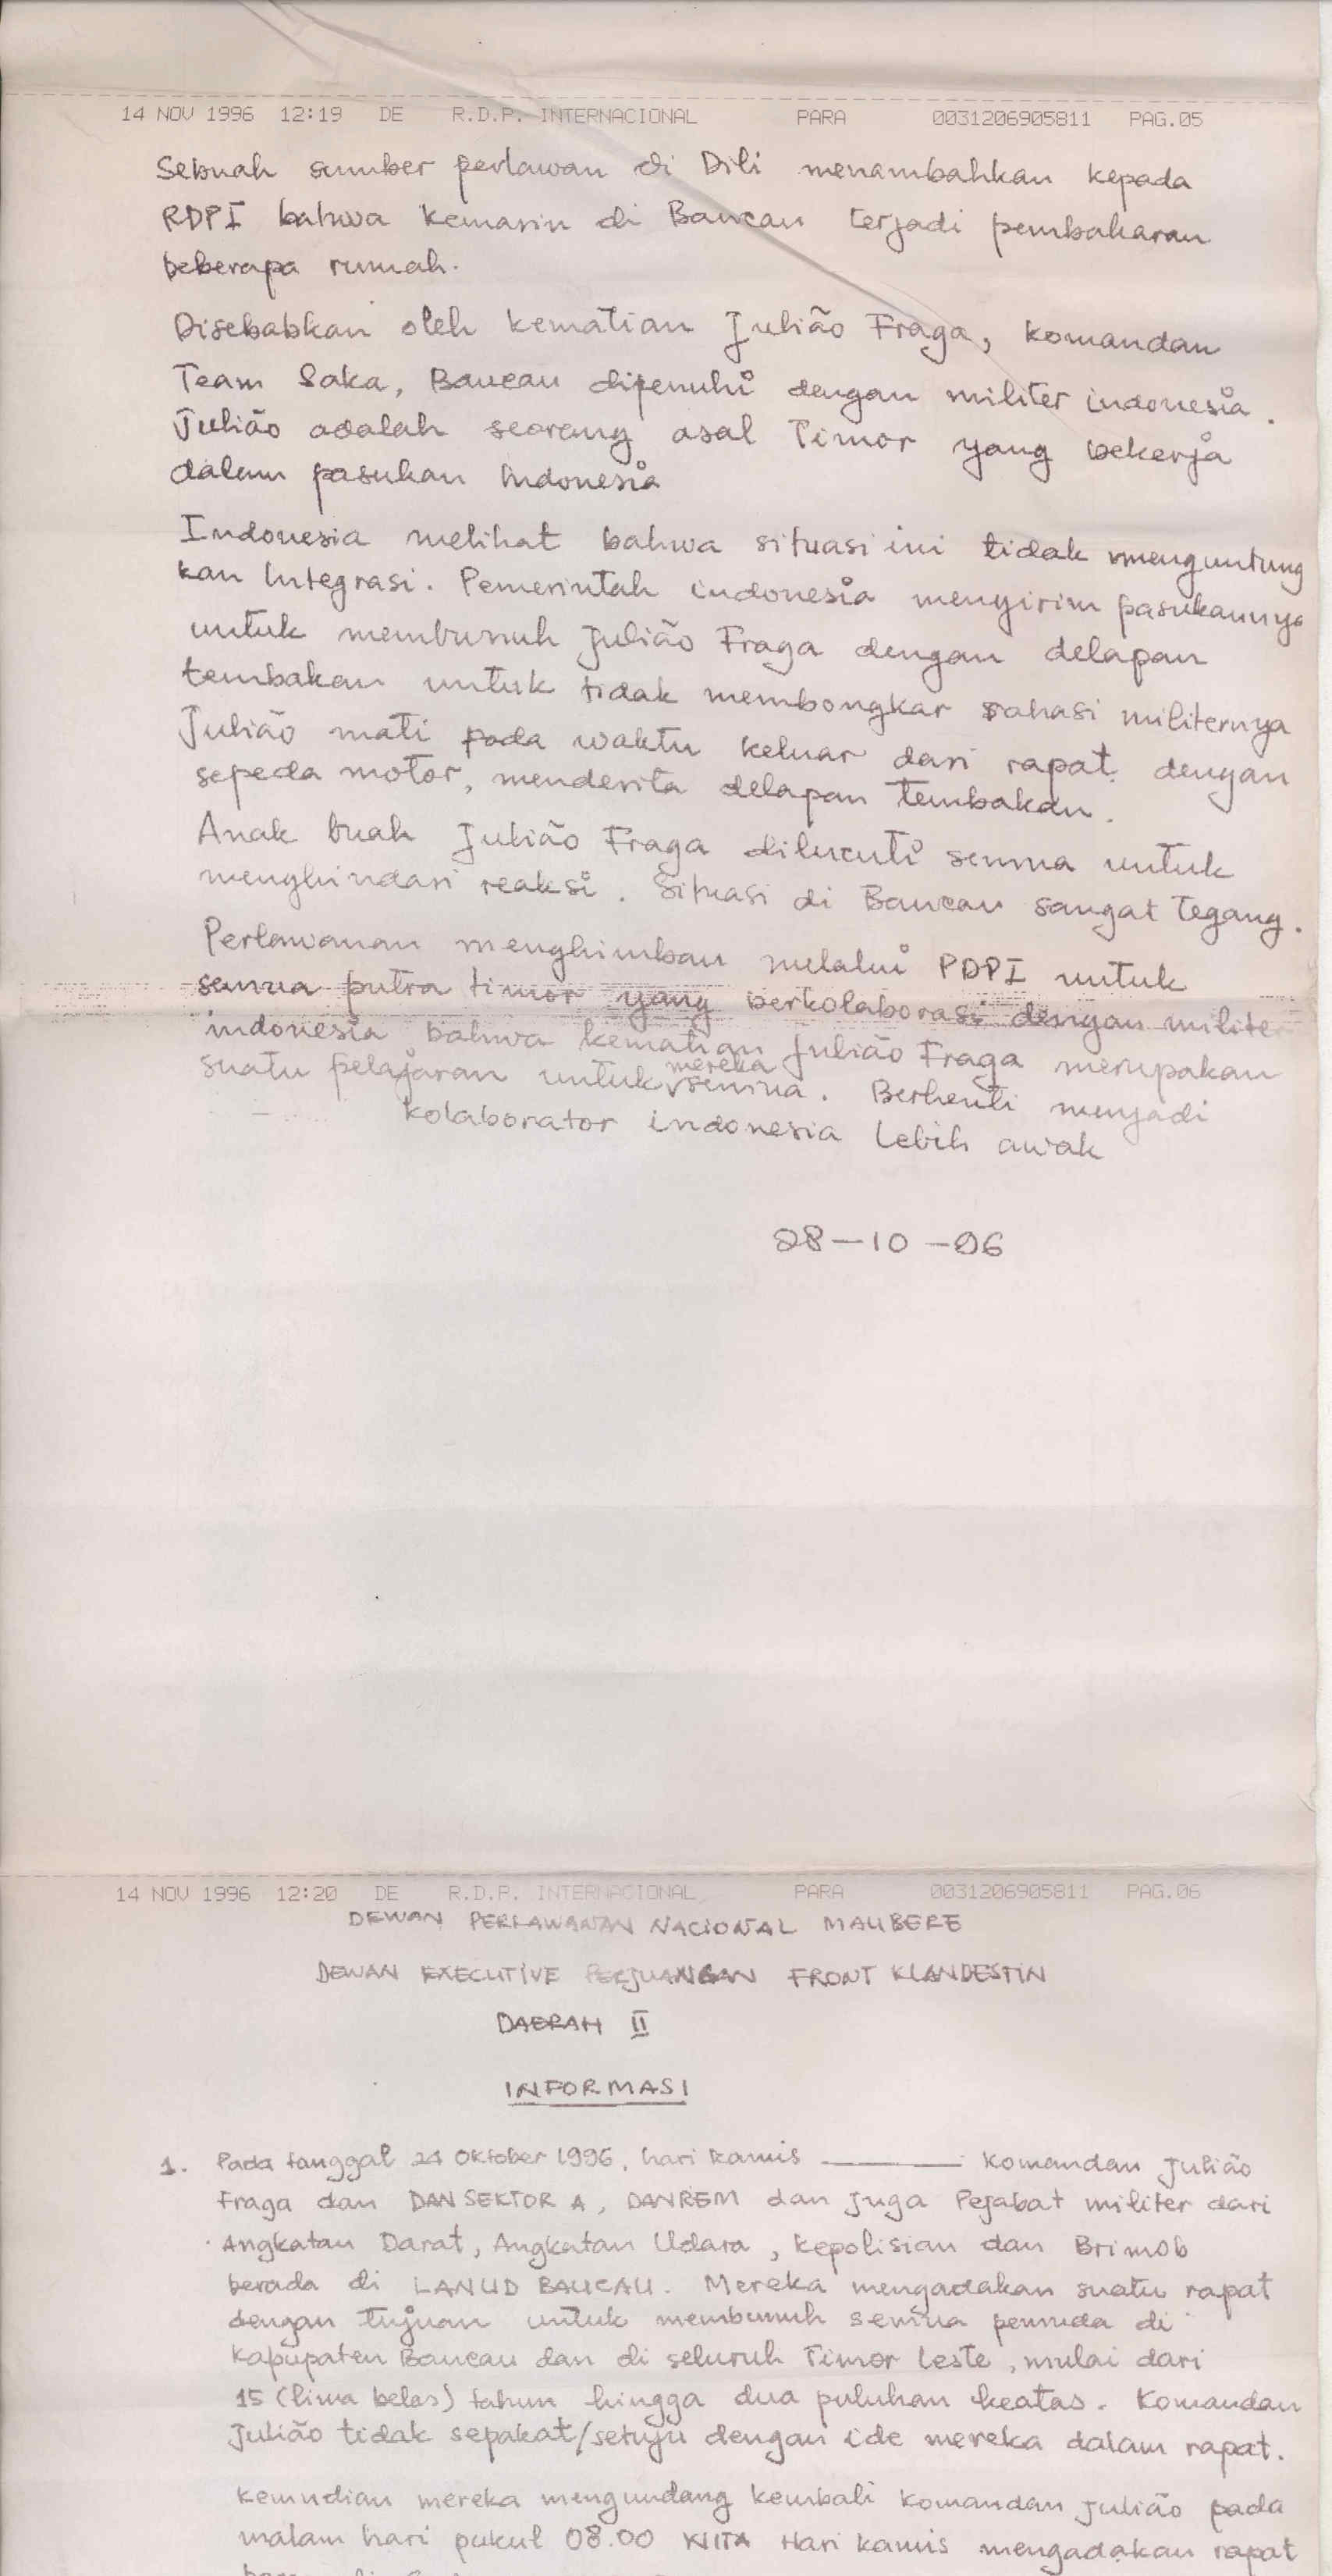 14 NOV 1996 12:19 DE R.D.P. INTERNACIONAL PARA 0031206905811 PAG.05
Sebuah sumber perlawan di Dili menambahkan kepada
RDPI bahwa kemarin di Baucau terjadi pembakaran
beberapa rumah.
Disebabkan oleh kematian Julião Fraga, komandan
Team Saka, Baucau dipenuhi dengan militer indonesia.
Julião adalah seorang asal Timor yang bekerja
dalam pasukan Indonesia
Indonesia melihat bahwa situasi ini tidak menguntung
kan Integrasi. Pemerintah indonesia mengirim pasukannya
untuk membunuh Julião Fraga dengan delapan
tembakan untuk tidak membongkar rahasi militernya
Julião mati pada waktu keluar dari rapat dengan
sepeda motor, menderita delapan tembakan.
Anak buah Julião Fraga dilucuti semua untuk
menghindari reaksi. Situasi di Baucau sangat tegang.
Perlawanan menghimbau melalui PDPI untuk
semua putra timor yang berkolaborasi dengan milite
indonesia bahwa kematian Julião Fraga merupakan
suatu pelajaran untuk mereka semua. Berhenti menjadi
kolaborator indonesia lebih awak
28-10-96
14 NOV 1996 12:20 DE R.D.P. INTERNACIONAL PARA 0031206905811 PAG.06
DEWAN PERLAWANAN NACIONAL MAUBERE
DEWAN EXECUTIVE PERJUANGAN FRONT KLANDESTIN
DAERAH II
INFORMASI
1. Pada tanggal 24 Oktober 1996, hari kamis ——— Komandan Julião
Fraga dan DAN SEKTOR A, DANREM dan juga Pejabat militer dari
Angkatan Darat, Angkatan Udara, kepolisian dan Brimob
berada di LANUD BAUCAU. Mereka mengadakan suatu rapat
dengan tujuan untuk membunuh semua pemuda di
Kapupaten Baucau dan di seluruh Timor Leste, mulai dari
15 (lima belas) tahun hingga dua puluhan keatas. Komandan
Julião tidak sepakat/setuju dengan ide mereka dalam rapat.
Kemudian mereka mengundang kembali Komandan Julião pada
malam hari pukul 08.00 WITA Hari kamis mengadakan rapat